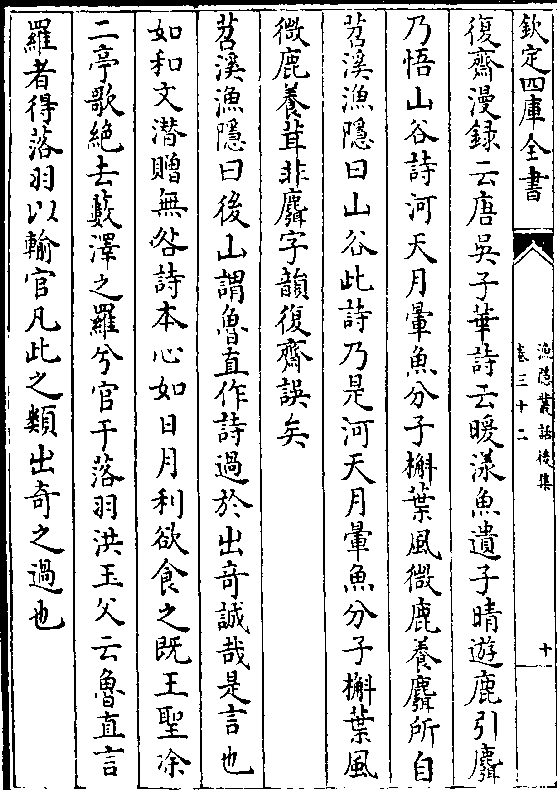 欽定四庫全書
漁隱叢話後集
卷三十二
十
復齋漫録云唐吳子華詩云暖漾魚遺子晴遊鹿引麛
乃悟山谷詩河天月暈魚分子槲葉風微鹿養麛所自
苕溪漁隱曰山谷此詩乃是河天月暈魚分子槲葉風
微鹿養茸非麛字韻復齋誤矣
苕溪漁隱曰後山謂魯直作詩過於出竒誠哉是言也
如和文潜贈無咎詩本心如日月利欲食之既王聖涂
二亭歌絶去藪澤之羅兮官干落羽洪玉父云魯直言
羅者得落羽以輸官凡此之類出竒之過也